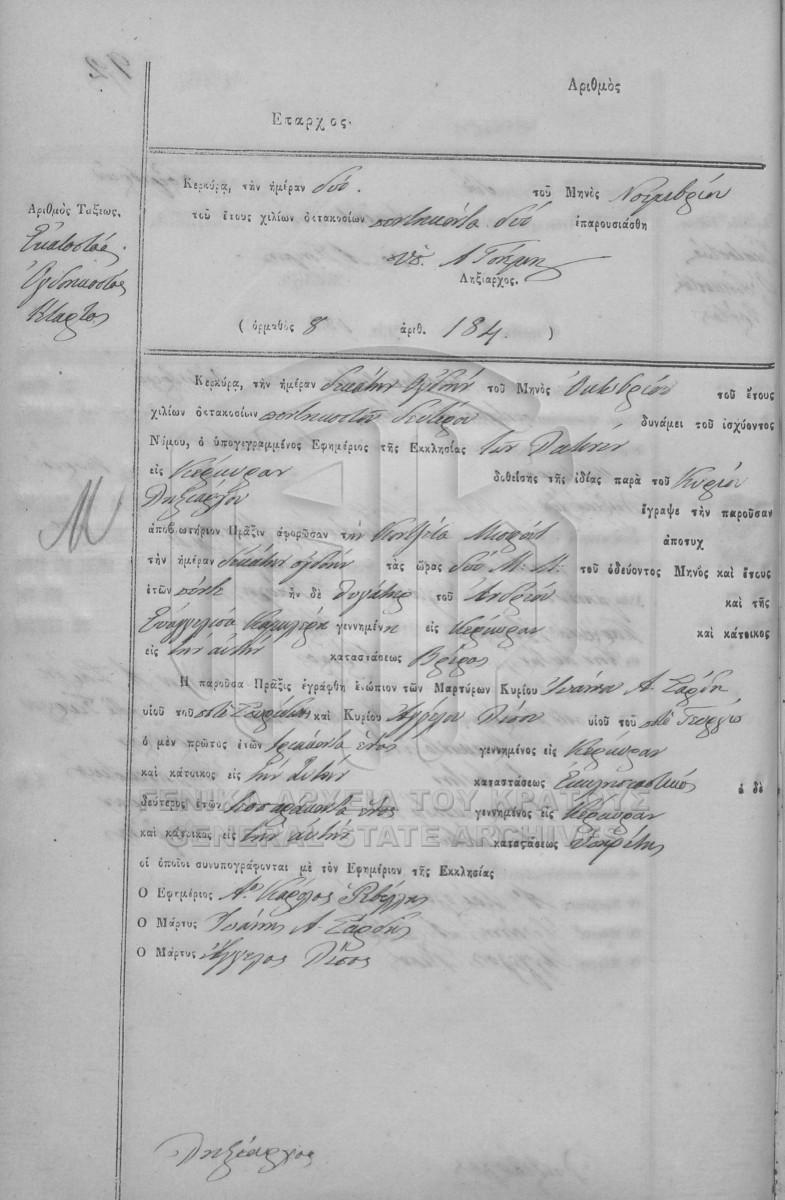 92
Αριθμὸς
Επαρχος.
Κερκύρα, τὴν ἡμέραν δύο. τοῦ Μηνὸς Νοεμβρίου
τοῦ ἔτους χιλίων ὀκτακοσίων πεντηκόντα δύο ἐπαρουσιάσθη
Ληξίαρχος.
Αριθμὸς Τάξεως.
Εκατοστός.
Ογδοηκοστός
Κταρτος
( ὁρμαθὸς 8 ἀριθ. 184. )
Κερκύρα, τὴν ἡμέραν δεκάτην ὀγδόην τοῦ Μηνὸς Ὀκτωβρίου τοῦ ἔτους
χιλίων ὀκτακοσίων πεντηκοστοῦ δευτέρου δυνάμει τοῦ ἰσχύοντος
Νόμου, ὁ ὑπογεγραμμένος Εφημέριος τῆς Εκκλησίας των Λατίνων
εἰς Κέρκυραν δοθείσης τῆς ἰδέας παρὰ τοῦ Κυρίου
Ληξιάρχου ἔγραψε τὴν παροῦσαν
ἀποβιωτήριον Πρᾶξιν ἀφορῶσαν την ἀποτυχ
τὴν ἡμέραν δεκάτην ὀγδόην τὰς ὥρας δύο Μ: Μ: τοῦ ὁδεύοντος Μηνὸς καὶ ἔτους
ἐτῶν πέντε ἦν δὲ θυγάτηρ τοῦ Ανδρέου καὶ τῆς
Ευαγγελισα γεννημένη εἰς Κέρκυραν καὶ κάτοικος
εἰς την αυτην καταστάσεως Βρέφος
Η παροῦσα Πρᾶξις ἐγράφθη ἐνώπιον τῶν Μαρτύρων Κυρίου Ἰωάννου Α. Σαρδη
υἱοῦ τοῦ ποτὲ καὶ Κυρίου Ἀγγέλου Πίσου υἱοῦ τοῦ ποτὲ Γεωργίου
ὁ μὲν πρῶτος ἐτῶν τριάκοντα ἑπτὸς γεννημένος εἰς Κέρκυραν
καὶ κάτοικος εἰς την αυτην καταστάσεως Ἐκκλησιαστικὸς ὁ δὲ
δεύτερος ἐτῶν τεσσαράκοντα ἑπτὸς γεννημένος εἰς Κέρκυραν
καὶ κάτοικος εἰς την αυτην καταστάσεως
οἱ ὁποῖοι συνυπογράφονται μὲ τὸν Εφημέριον τῆς Εκκλησίας
Ο Εφημέριος Κάρολος
Ο Μάρτυς Ἰωάννης Α. Σαρδης
Ο Μάρτυς Ἄγγελος Πίσος
Ληξίαρχος
ΓΕΝΙΚΑ ΑΡΧΕΙΑ ΤΟΥ ΚΡΑΤΟΥΣ
GENERAL STATE ARCHIVES